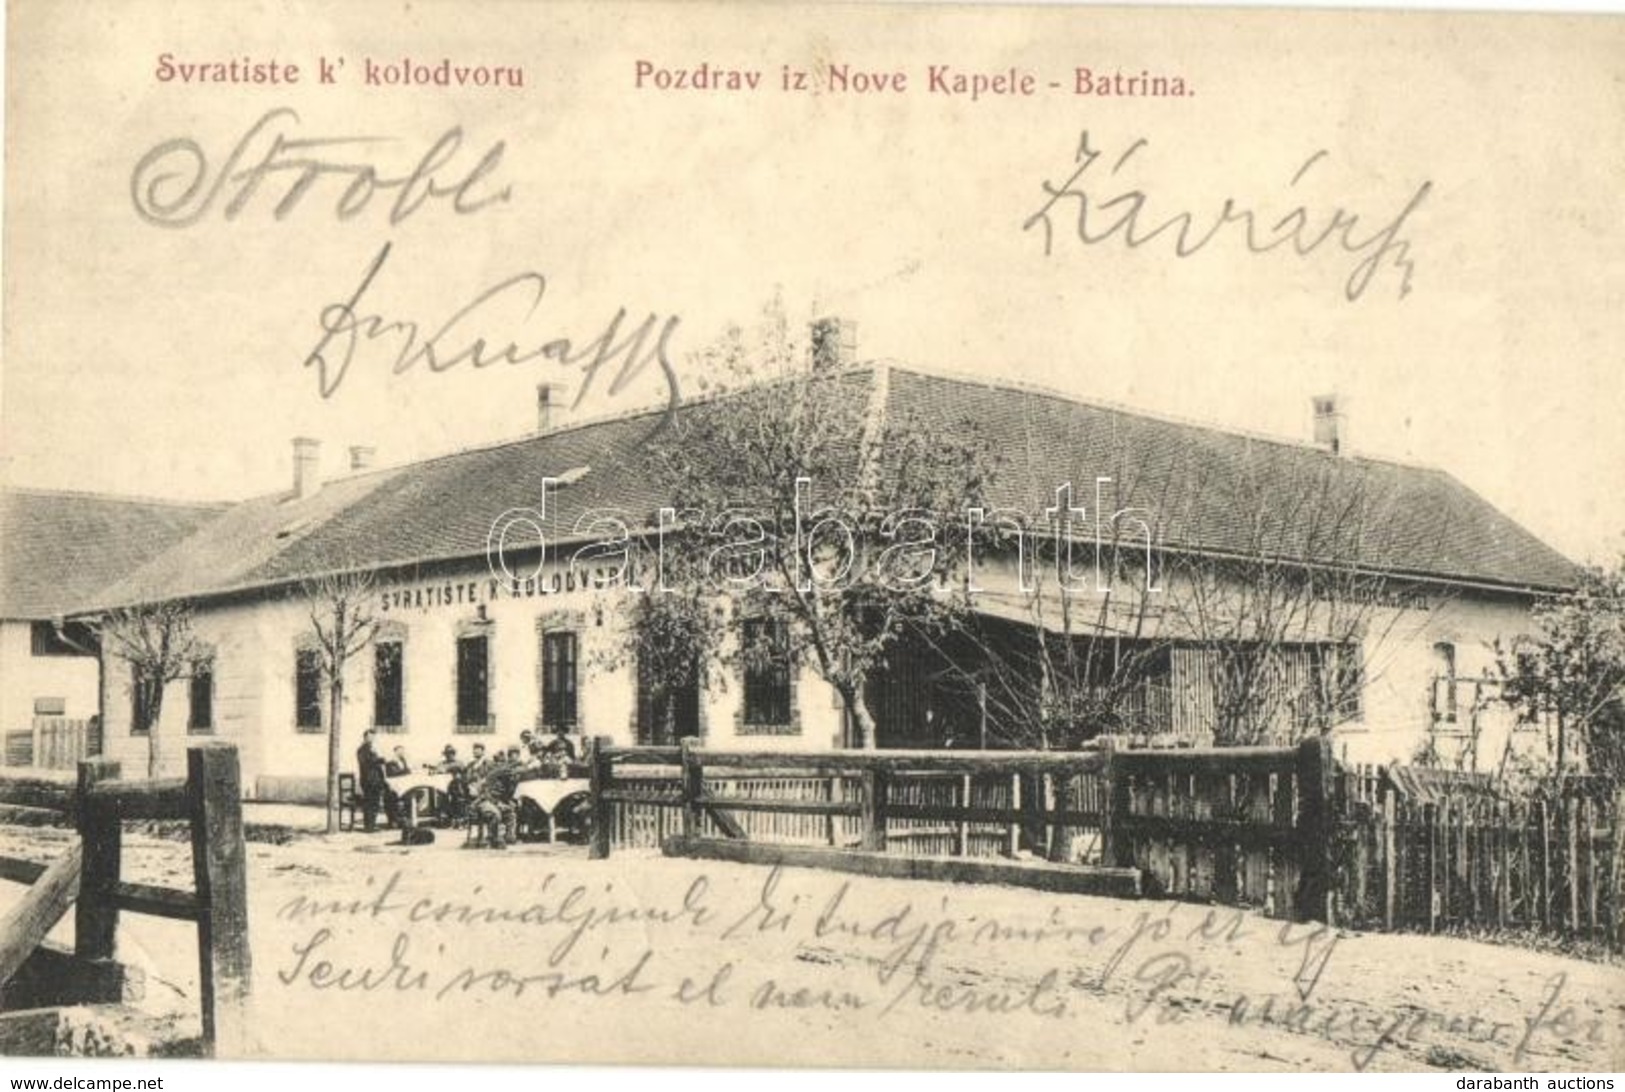 Svratiste k' kolodvoru Pozdrav iz Nove Kapele - Batrina.
Strobl.
Závárh
Dr Knaffl
darabanth
SVRATISTE K KOLODVORU
mit csináljunk ki tudja mire jó ez így
Senki sorsát el nem kerüli. Pá aranyom
www.delcampe.net
darabanth auctions